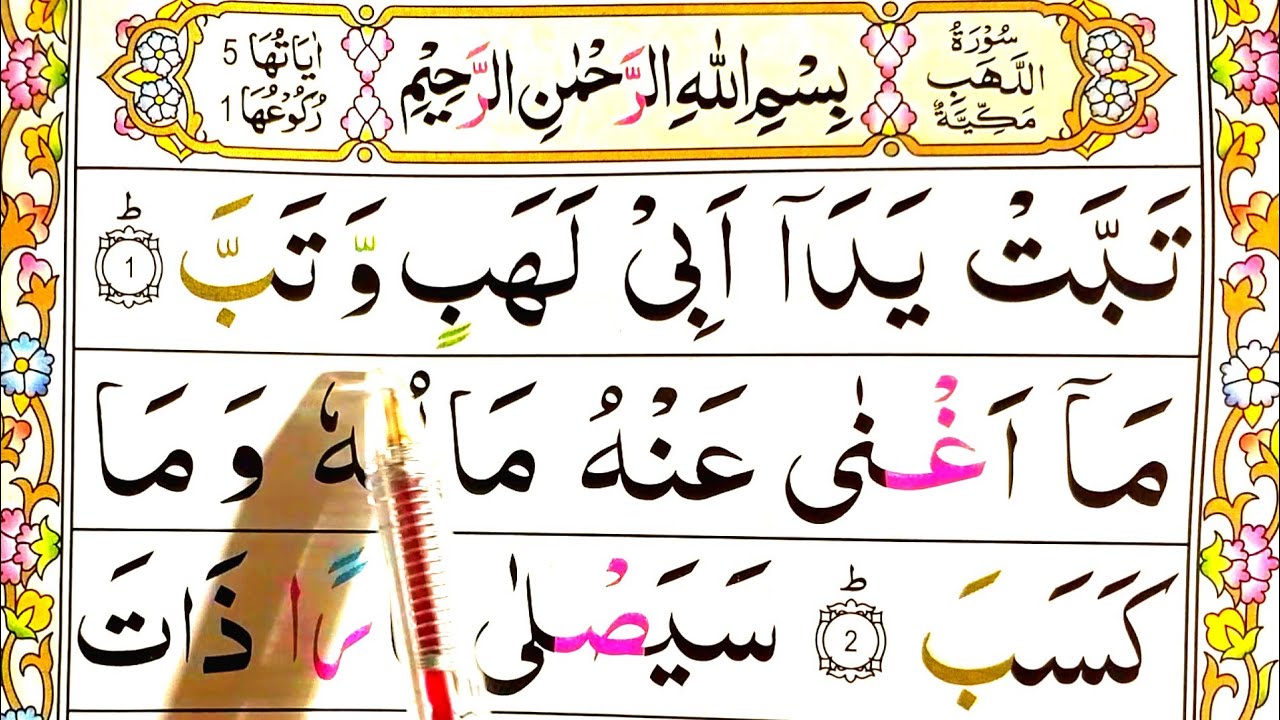 سُوْرَةُ
اللَّهَبِ
مَكِّيَّةٌ
بِسْمِ اللّٰهِ الرَّحْمٰنِ الرَّحِيْمِ
اٰيَاتُهَا 5
رُكُوْعُهَا 1
تَبَّتْ يَدَآ اَبِيْ لَهَبٍ وَّ تَبَّ ؕ 1
مَآ اَغْنٰى عَنْهُ مَالُهٗ وَ مَا
كَسَبَ ؕ 2 سَيَصْلٰى ذَاتَ